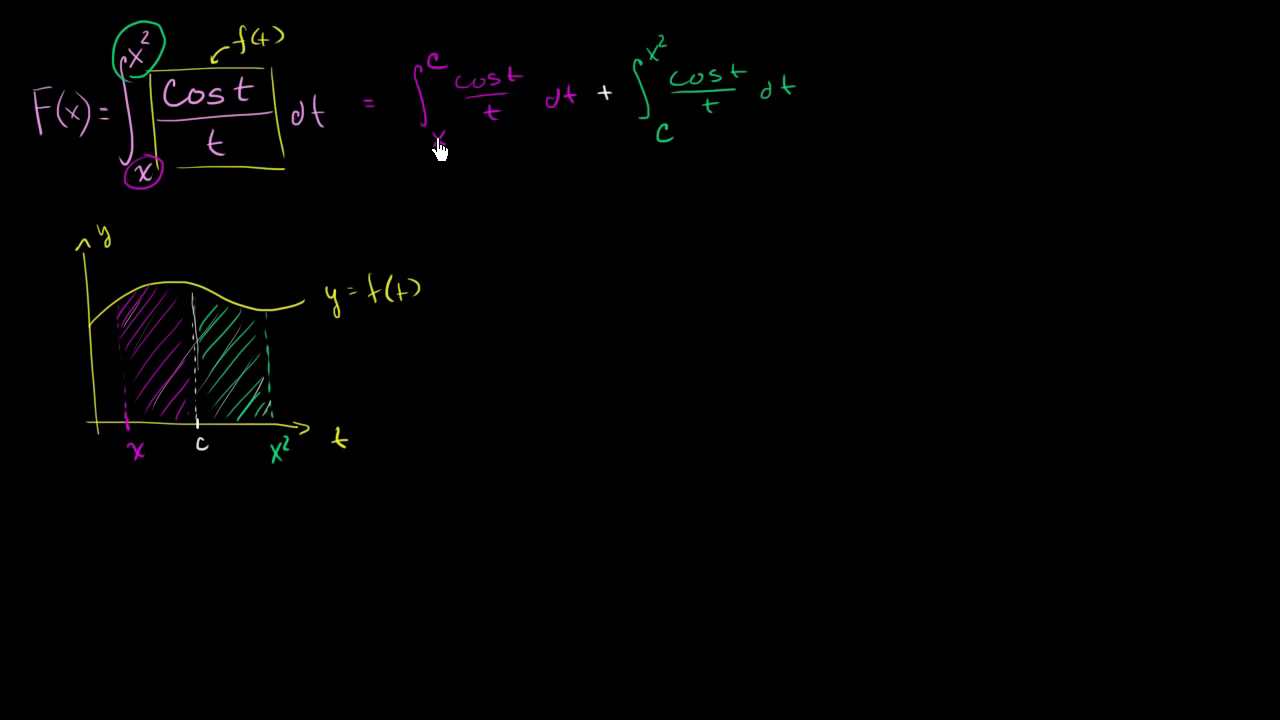 f(t)
F(x) = ∫ₓ^(x²) cos t / t dt = ∫ₓ^c cos t / t dt + ∫_c^(x²) cos t / t dt
y
y = f(t)
x c x² t